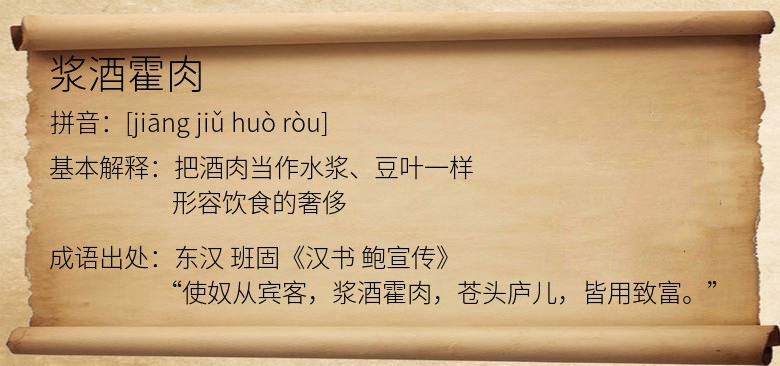 浆酒霍肉
拼音：[jiāng jiǔ huò ròu]
基本解释：把酒肉当作水浆、豆叶一样
形容饮食的奢侈
成语出处：东汉 班固《汉书 鲍宣传》
“使奴从宾客，浆酒霍肉，苍头庐儿，皆用致富。”